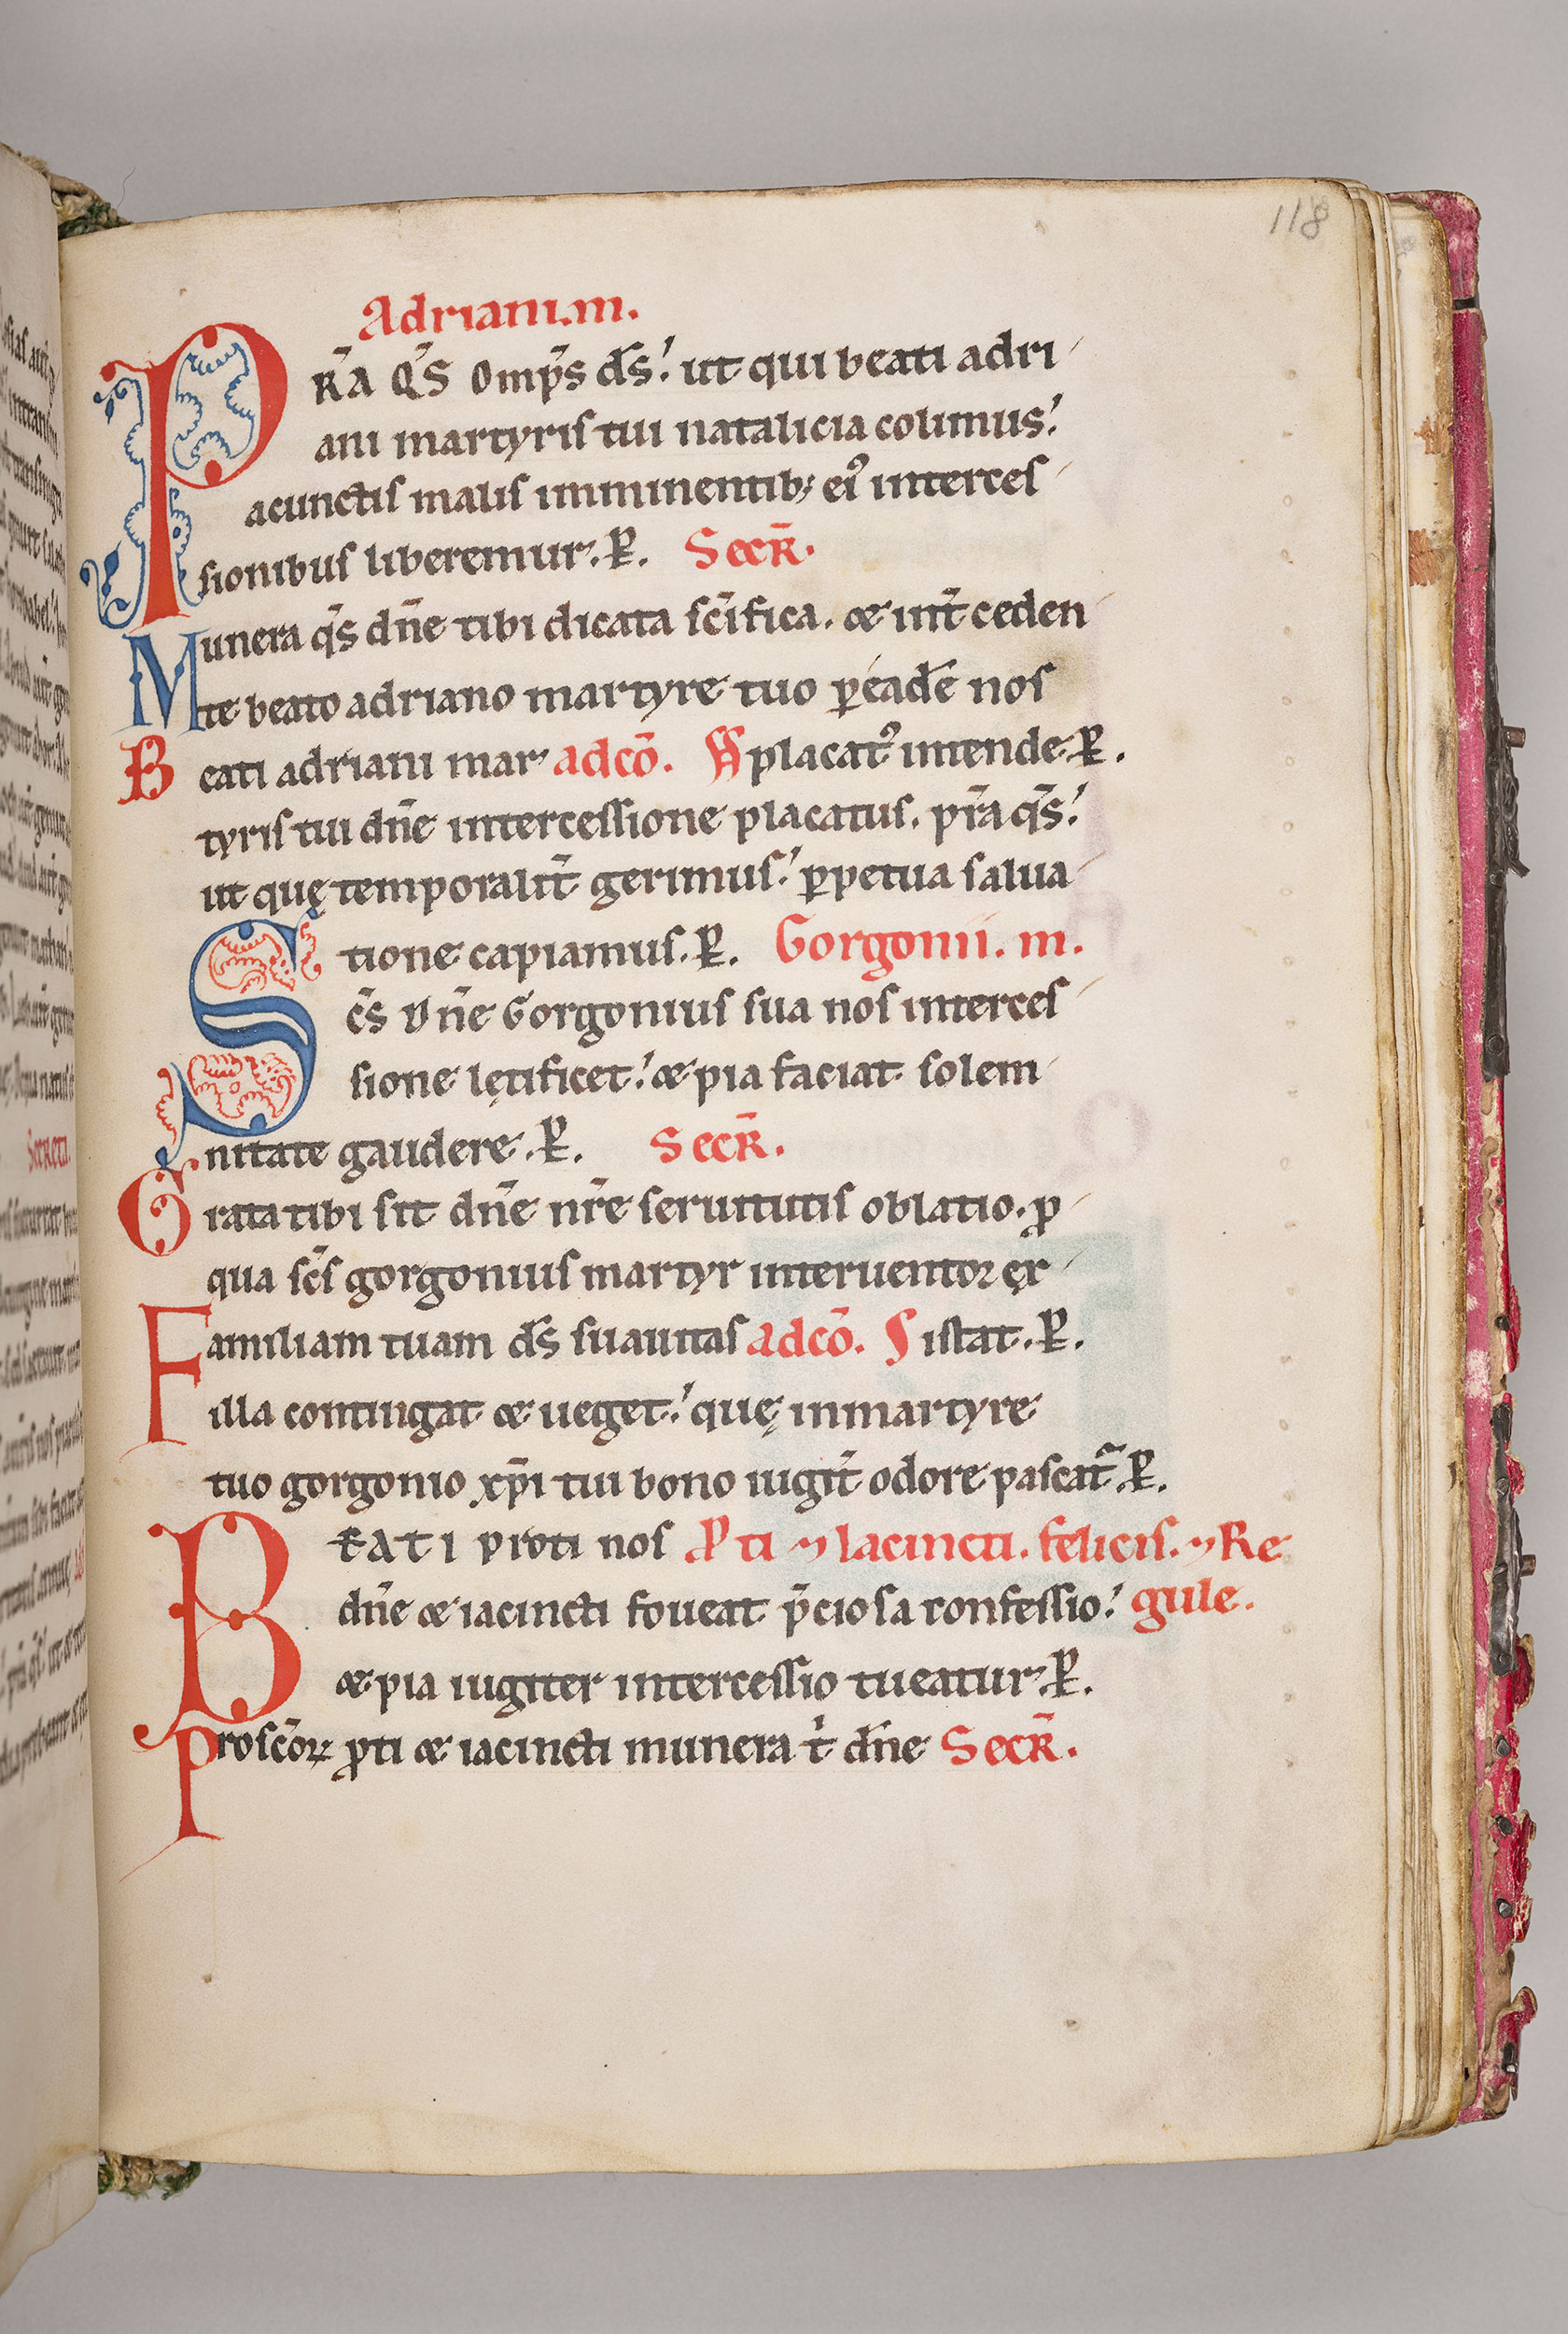 118
Adriani.m.
PR̄A Q̄S Omp̄s d̄s! ut qui beati adri
ani martyris tui natalicia colimus!
a cunctis malis imminentib; ei᾽ interces
sionibus liberemur. P̄. Secr̄.
Munera q̄s dn̄e tibi dicata sc̄ifica. & int̄ ceden
te beato adriano martyre tuo p̱ eadē nos
Beati adriani mar adcō. placat᾽ intende. P̄.
tyris tui dn̄e intercessione placatus. pr̄a q̄s!
ut quę temporalit̄ gerimus! p̱petua salua
tione capiamus. P̄. Gorgonii. m.
Sc̄s Dn̄e Gorgonius sua nos interces
sione lętificet! & pia faciat solem
nitate gaudere. P̄. Secr̄.
Grata tibi sit dn̄e nr̄e seruitutis oblatio. ꝓ
qua sc̄s gorgonius martyr interuentor ex
Familiam tuam d̄s suauitas adcō. Sistat. P̄.
illa contingat & ueget! quę in martyre
tuo gorgonio xp̄i tui bono iugit̄ odore pascat᾽. P̄.
BEATI proti nos Ꝓti & Iacincti. felicis. & Re
dn̄e & iacincti foueat p̄ciosa confessio! gule.
& pia iugiter intercessio tueatur. P̄.
Pro sc̄oꝝ ꝓti & iacincti munera t̄ dn̄e Secr̄.